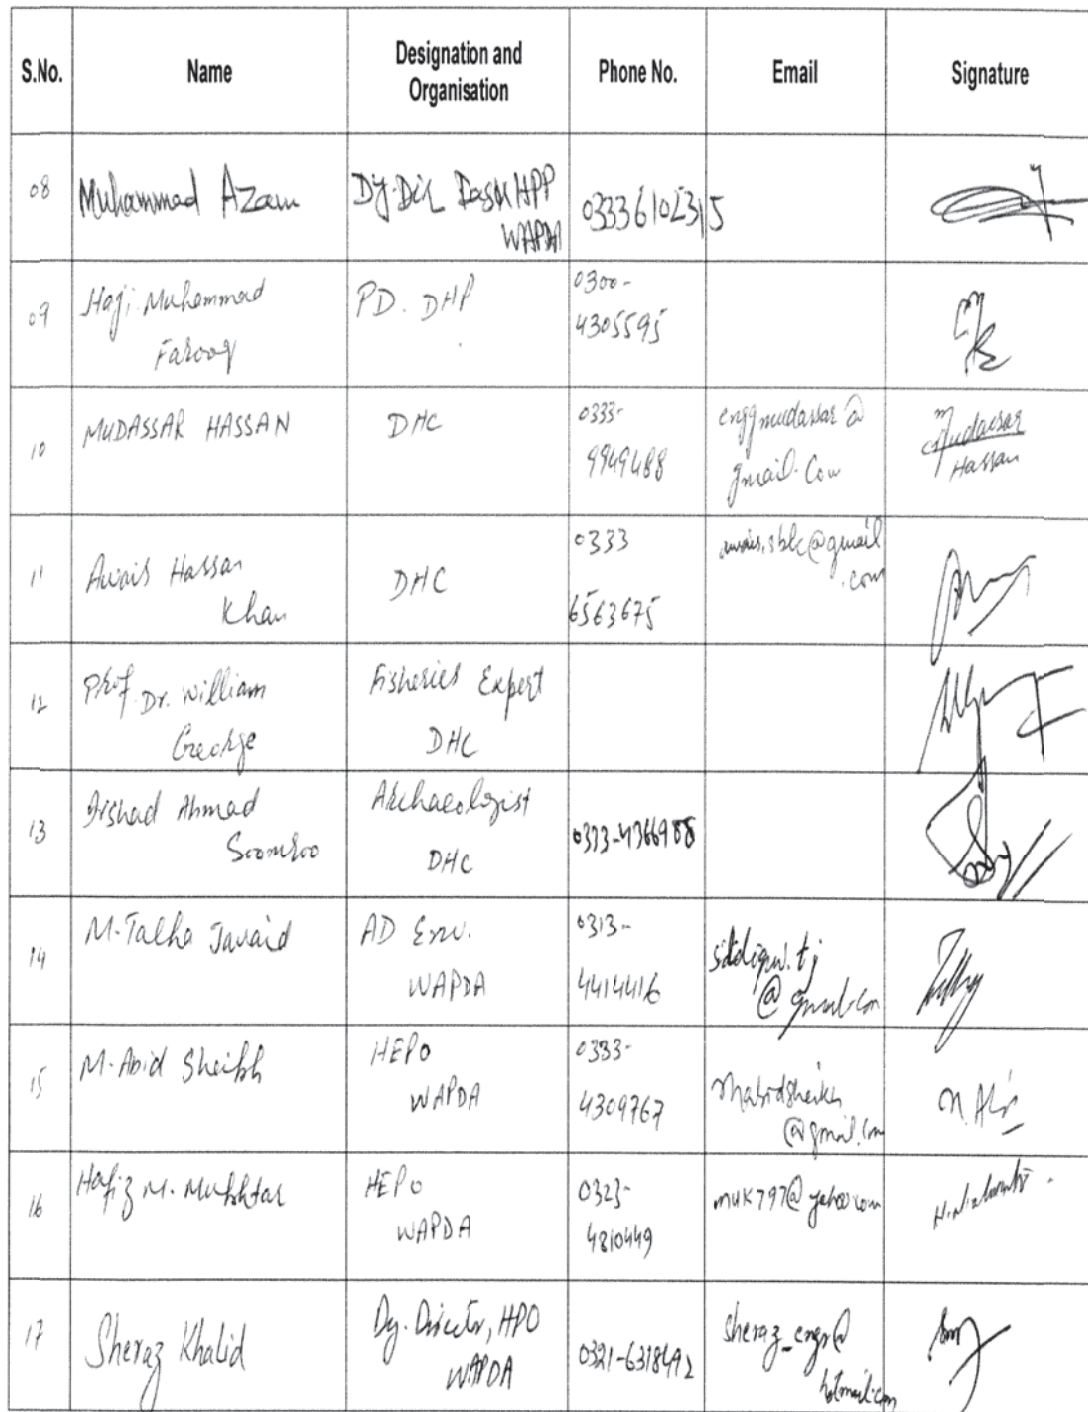 S.No. Name Designation and Organisation Phone No. Email Signature
08 Muhammad Azam Dy. Dir Dasu HPP WAPDA 03336102315
09 Haji Muhammad Farooq PD. DHP 0300-4305595
10 MUDASSAR HASSAN DHC 0333-9949488 enggmudassar@gmail.com Mudassar Hassan
11 Awais Hassan Khan DHC 0333 6563675 awais.sblc@gmail.com
12 Prof. Dr. William George Fisheries Expert DHC
13 Irshad Ahmad Soomroo Archaeologist DHC 0333-4366988
14 M. Talha Javaid AD Env. WAPDA 0313-4414416 @gmail.com
15 M. Abid Sheikh HEPO WAPDA 0333-4309767 mabidsheikh@gmail.com
16 Hafiz M. Mukhtar HEPO WAPDA 0323-4810449 muk797@yahoo.com
17 Sheraz Khalid Dy. Director, HPO WAPDA 0321-6318492 sheraz_engr@hotmail.com